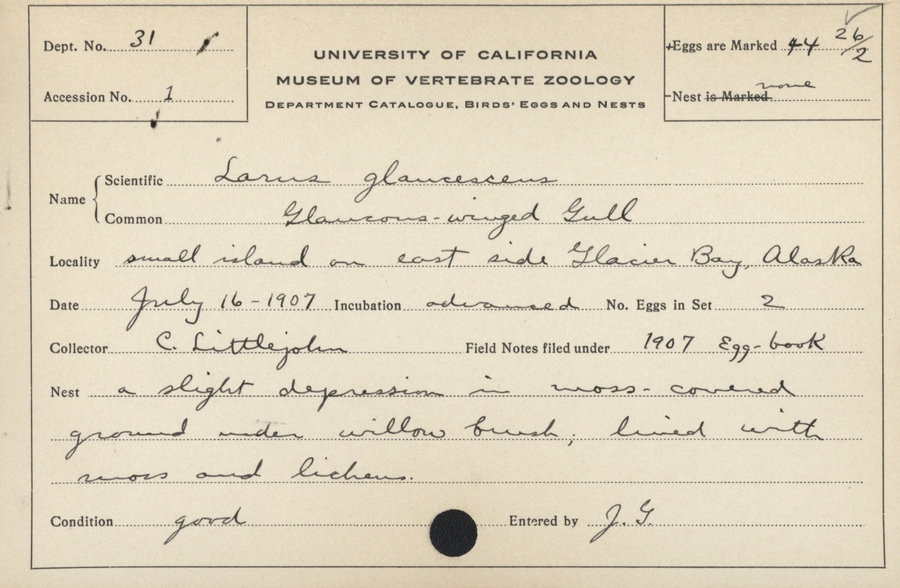 Dept. No. 31
Accession No. 1
UNIVERSITY OF CALIFORNIA
MUSEUM OF VERTEBRATE ZOOLOGY
DEPARTMENT CATALOGUE, BIRDS' EGGS AND NESTS
Eggs are Marked 44 26/2
Nest is Marked none
Name
Scientific Larus glaucescens
Common Glaucous-winged Gull
Locality small island on east side Glacier Bay, Alaska
Date July 16-1907 Incubation advanced No. Eggs in Set 2
Collector C. Littlejohn Field Notes filed under 1907 Egg-book
Nest a slight depression in moss-covered
ground under willow brush; lined with
moss and lichens.
Condition good Entered by J. G.